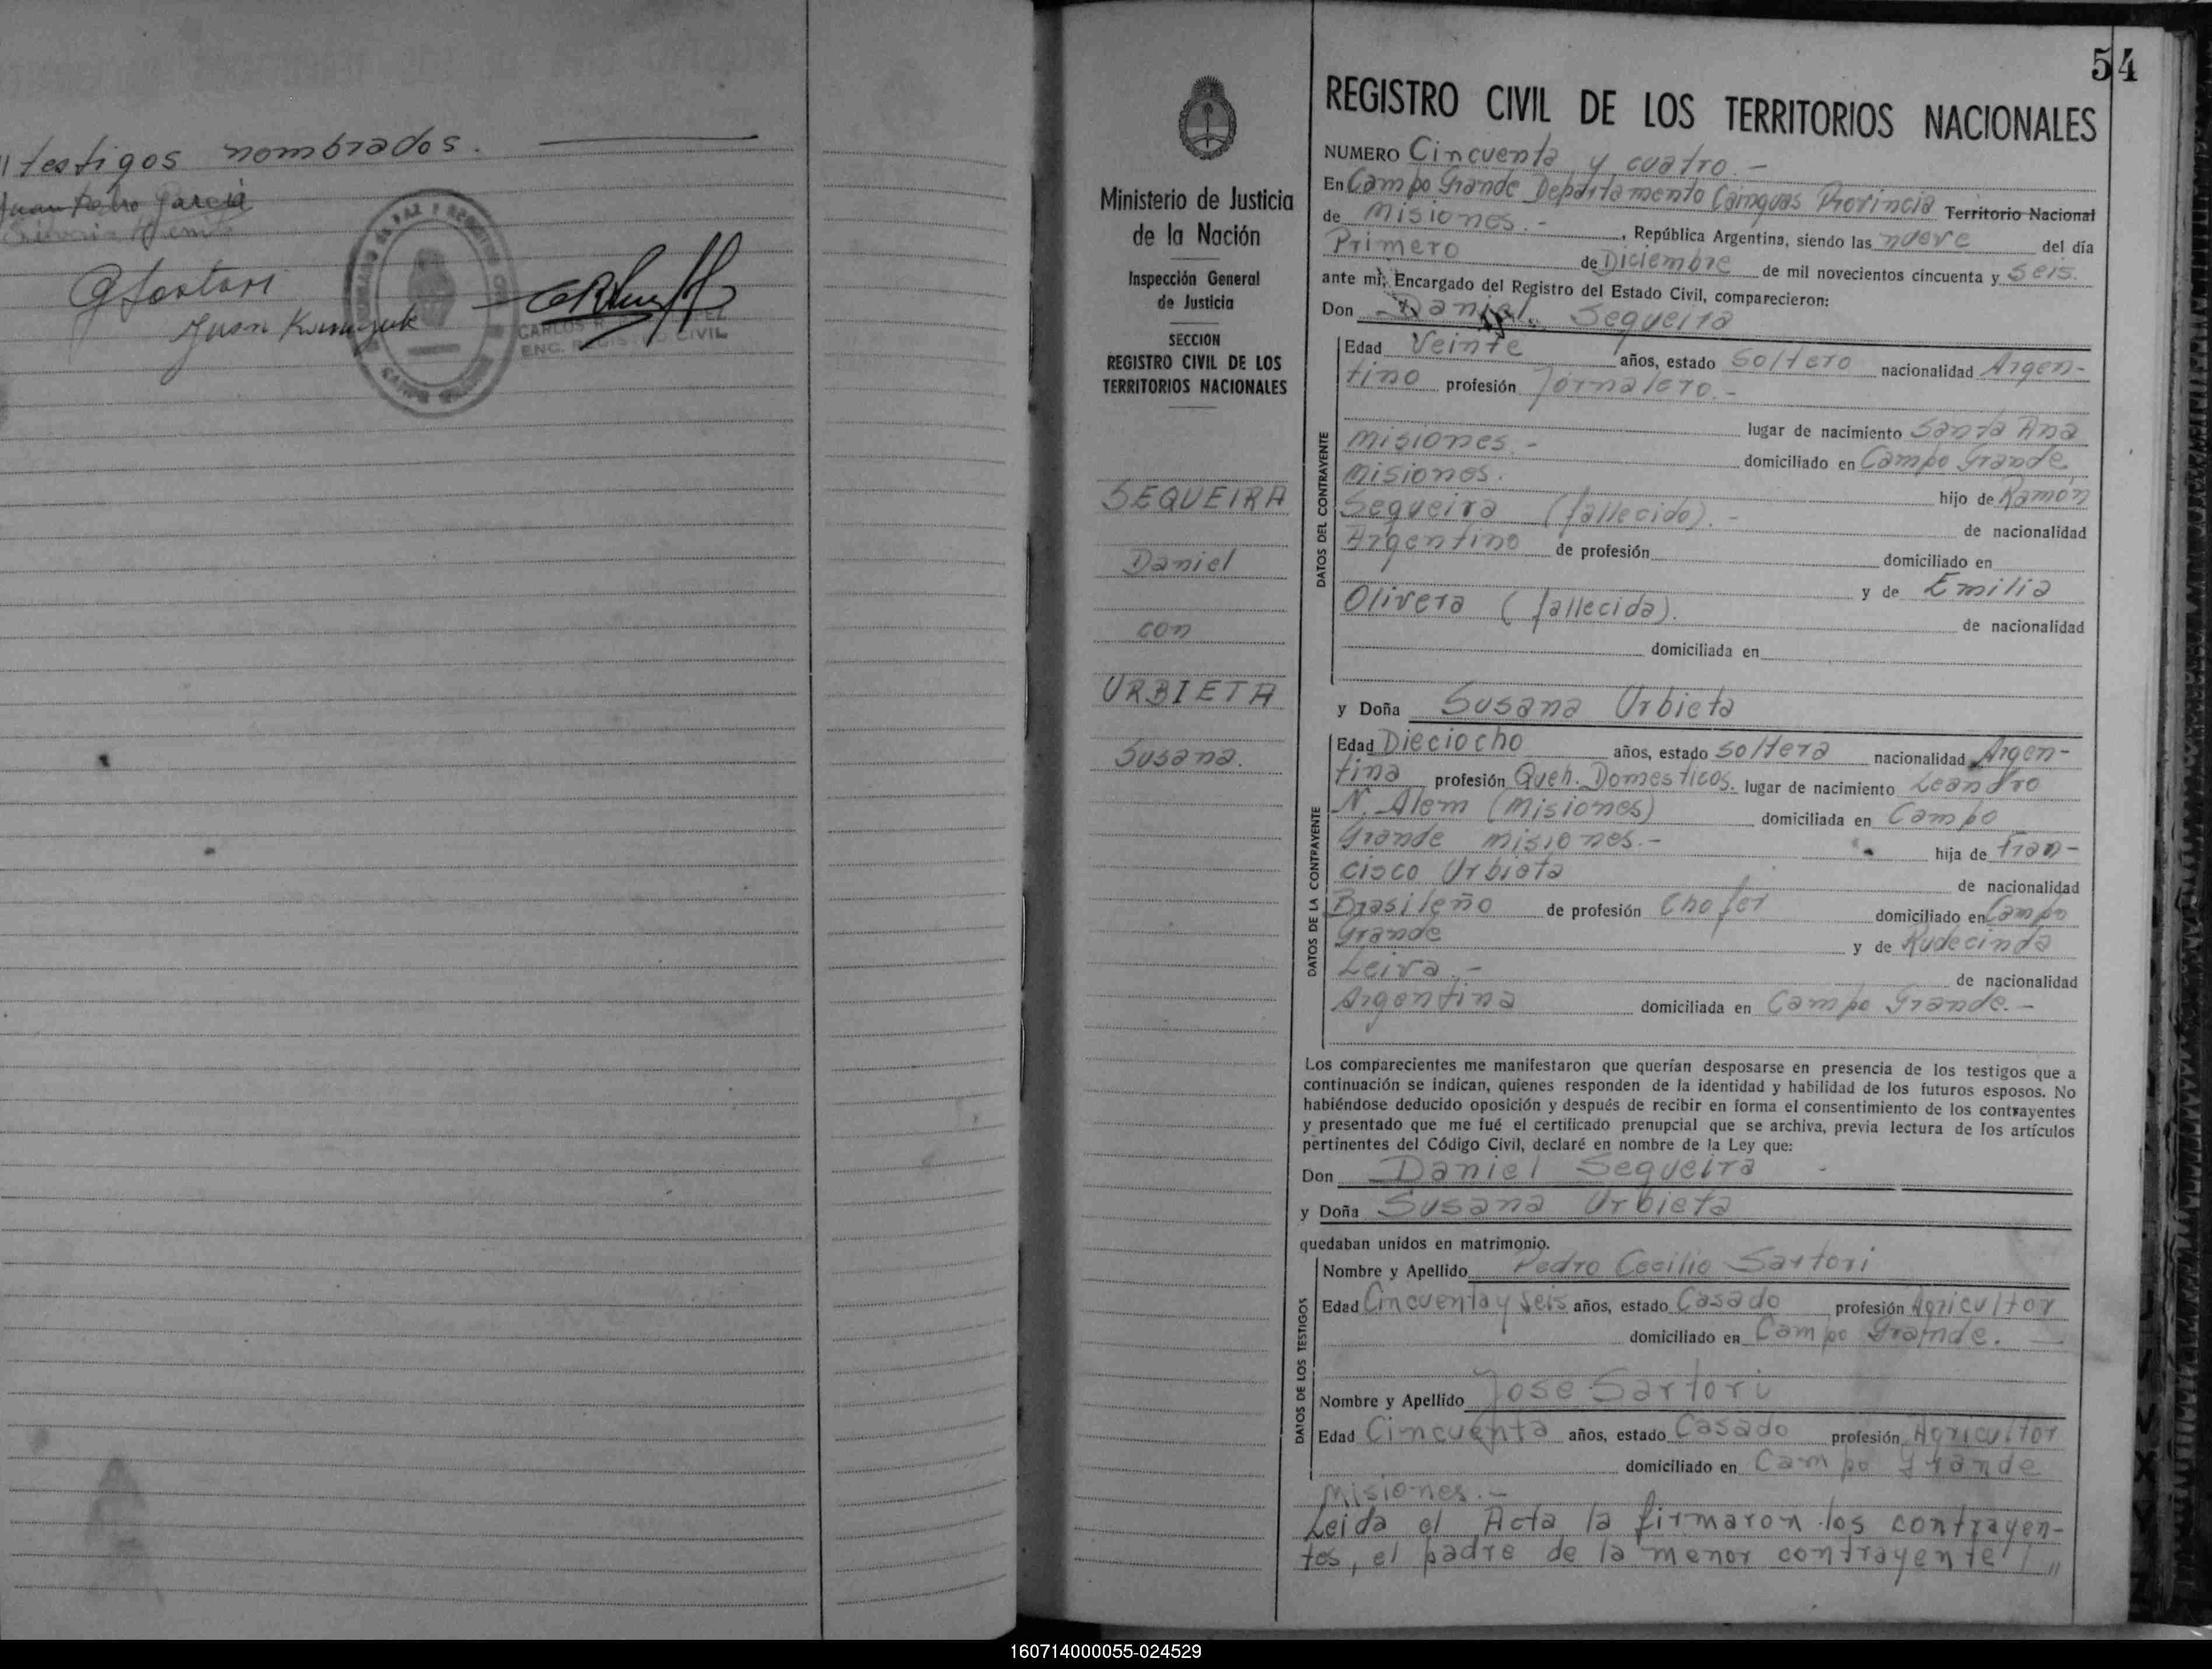 testigos nombrados.
Juan Pedro Garcia
Juan
CARLOS R.
ENC. REGISTRO CIVIL
Ministerio de Justicia
de la Nación
Inspección General
de Justicia
SECCION
REGISTRO CIVIL DE LOS
TERRITORIOS NACIONALES
SEQUEIRA
Daniel
con
URBIETA
Susana.
54
REGISTRO CIVIL DE LOS TERRITORIOS NACIONALES
NUMERO Cincuenta y cuatro.-
En Campo Grande Departamento Cainguas Provincia Territorio Nacional
de Misiones.- , República Argentina, siendo las nueve del día
Primero de Diciembre de mil novecientos cincuenta y seis.
ante mí, Encargado del Registro del Estado Civil, comparecieron:
Don Daniel Sequeira
DATOS DEL CONTRAYENTE
Edad Veinte años, estado Soltero nacionalidad Argen-
tino profesión Jornalero.-
lugar de nacimiento Santa Ana
Misiones.- domiciliado en Campo Grande
Misiones. hijo de Ramón
Sequeira (fallecido).- de nacionalidad
Argentino de profesión domiciliado en
y de Emilia
Olivera (fallecida). de nacionalidad
domiciliada en
y Doña Susana Urbieta
DATOS DE LA CONTRAYENTE
Edad Dieciocho años, estado Soltera nacionalidad Argen-
tina profesión Queh. Domesticos. lugar de nacimiento Leandro
N. Alem (Misiones) domiciliada en Campo
Grande Misiones.- hija de Fran-
cisco Urbieta de nacionalidad
Brasileño de profesión Chofer domiciliado en Campo
Grande y de Rudecinda
Leiva.- de nacionalidad
Argentina domiciliada en Campo Grande.-
Los comparecientes me manifestaron que querían desposarse en presencia de los testigos que a
continuación se indican, quienes responden de la identidad y habilidad de los futuros esposos. No
habiéndose deducido oposición y después de recibir en forma el consentimiento de los contrayentes
y presentado que me fué el certificado prenupcial que se archiva, previa lectura de los artículos
pertinentes del Código Civil, declaré en nombre de la Ley que:
Don Daniel Sequeira
y Doña Susana Urbieta
quedaban unidos en matrimonio.
DATOS DE LOS TESTIGOS
Nombre y Apellido Pedro Cecilio Sartori
Edad Cincuenta y seis años, estado Casado profesión Agricultor
domiciliado en Campo Grande.
Nombre y Apellido Jose Sartori
Edad Cincuenta años, estado Casado profesión Agricultor
domiciliado en Campo Grande
Misiones.-
Leida el Acta la firmaron los contrayen-
tes, el padre de la menor contrayente
160714000055-024529